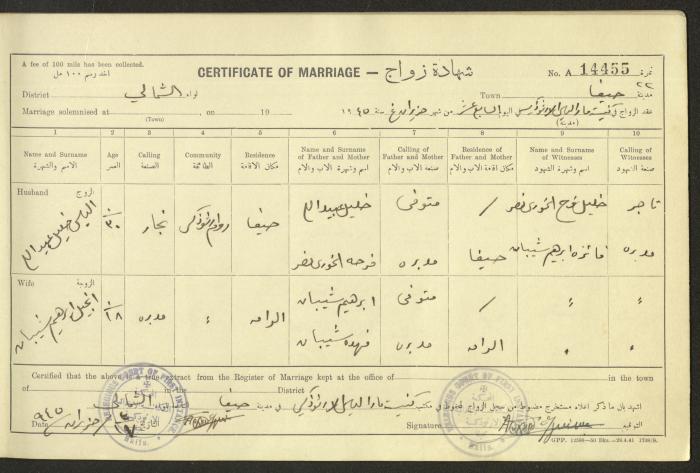 A fee of 100 mils has been collected.
اخذ رسم ١٠٠ مل
CERTIFICATE OF MARRIAGE — شهادة زواج
No. A 14455 نمرة
District لواء الشمالي
Town مدينة حيفا
Marriage solemnised at (Town) , on 19
عقد الزواج في (مدينة) اليوم السابع عشر من شهر حزيران سنة ١٩٤٥
1 2 3 4 5 6 7 8 9 10
Name and Surname الاسم والشهرة
Age العمر
Calling الصنعة
Community الطائفة
Residence مكان الاقامة
Name and Surname of Father and Mother اسم وشهرة الاب والام
Calling of Father and Mother صنعة الاب والام
Residence of Father and Mother مكان اقامة الاب والام
Name and Surname of Witnesses اسم وشهرة الشهود
Calling of Witnesses صنعة الشهود
Husband الزوج
الياس خليل عبيد الله
٣٠
نجار
روم ارثوذكس
حيفا
خليل عبيد الله
متوفى
/
خليل فرح الخوري نصر
تاجر
فرحه الخوري نصر
مدبره
حيفا
فائزه ابرهيم شيبان
مدبره
Wife الزوجة
انجيل ابرهيم شيبان
١٨
مدبره
〃
الرامه
ابرهيم شيبان
متوفى
/
〃
〃
فهده شيبان
مدبره
الرامه
〃
〃
Certified that the above is a true extract from the Register of Marriage kept at the office of in the town
of in the
اشهد بان ما ذكر اعلاه مستخرج مضبوط من سجل الزواج المحفوظ في مكتب
في مدينة حيفا
الشمالي
Date
حزيران ٩٤٥
Signature التوقيع
RELIGIOUS COURT OF FIRST INSTANCE
Haifa.
GPP. 12586—50 Bks.—26.4.41 1708/B.